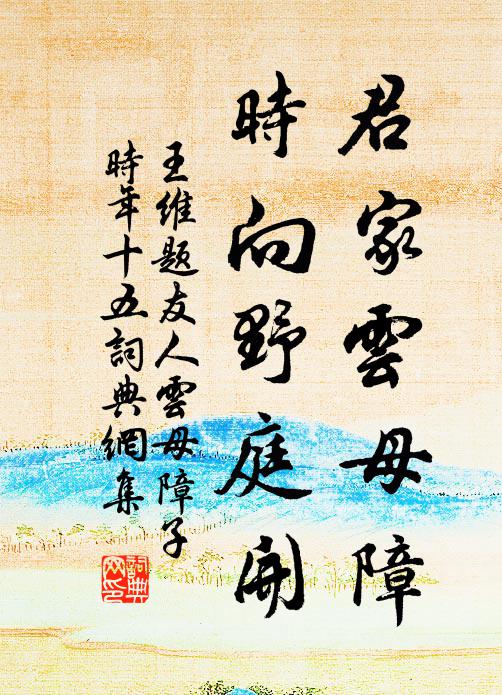 君家雲母障
時向野庭開
王維題友人雲母障子
時年十五詞典網集
詞典
网印